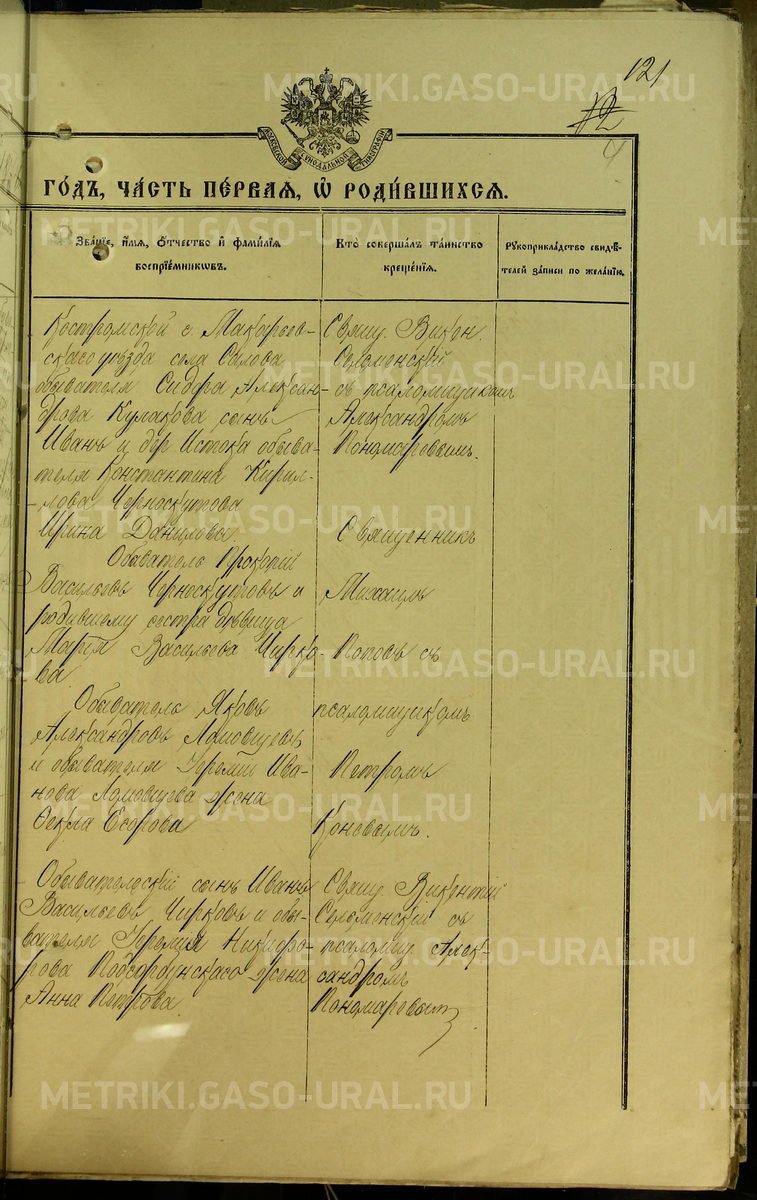 121
12
4
МОСКОВСКОЙ СѴНОДАЛЬНОЙ ТИПОГРАФІИ
ГОДЪ, ЧАСТЬ ПЕРВАЯ, Ѡ РОДИВШИХСЯ.
Званіе, имя, отчество и фамилія
воспріемниковъ.
Кто совершалъ таинство
крещенія.
Рукоприкладство свидѣ-
телей записи по желанію.
Костромской г. Макарьев-
скаго уѣзда села
обывателя Сидора Алексан-
дрова Кулакова сынъ
Иванъ и дер Истока обыва-
теля Константина Кирил-
лова Черноскутова
Ирина Данилова.
Свящ. Викен.
Селменский
съ псаломщикомъ
Александромъ
Пономаревымъ.
Обыватель Прокопій
Васильевъ Черноскутовъ и
родившему сестра дѣвица
Марія Васильева Чирко-
ва.
Священникъ
Михаилъ
Поповъ съ
псаломщикомъ
Петромъ
Коновымъ.
Обыватель Яковъ
Александровъ Ломовцевъ
и обывателя Іереміи Ива-
нова Ломовцева жена
Ѳекла Егорова
Обывательский сынъ Иванъ
Васильевъ Чирковъ и обы-
вателя Іеремія Никифо-
рова Подгорбунскаго жена
Анна Петрова.
Свящ. Викентій
Селменский съ
псаломщ. Алек-
сандромъ
Пономаревым
METRIKI.GASO-URAL.RU